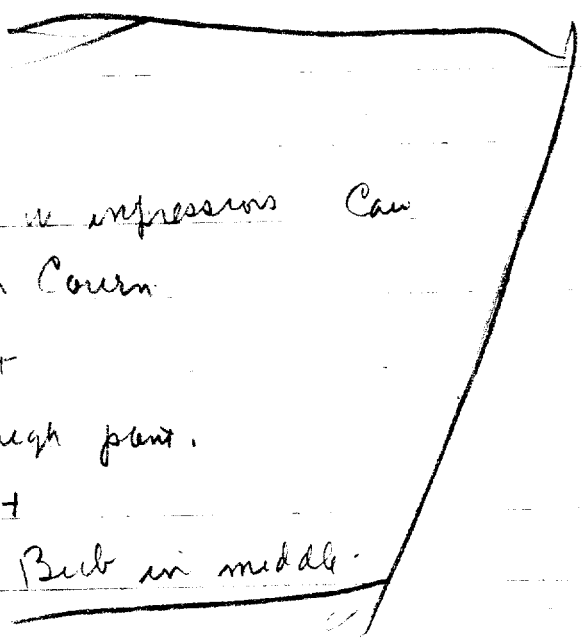 impressions Can
Courn
t
ugh plant.
t
Bulb in middle.